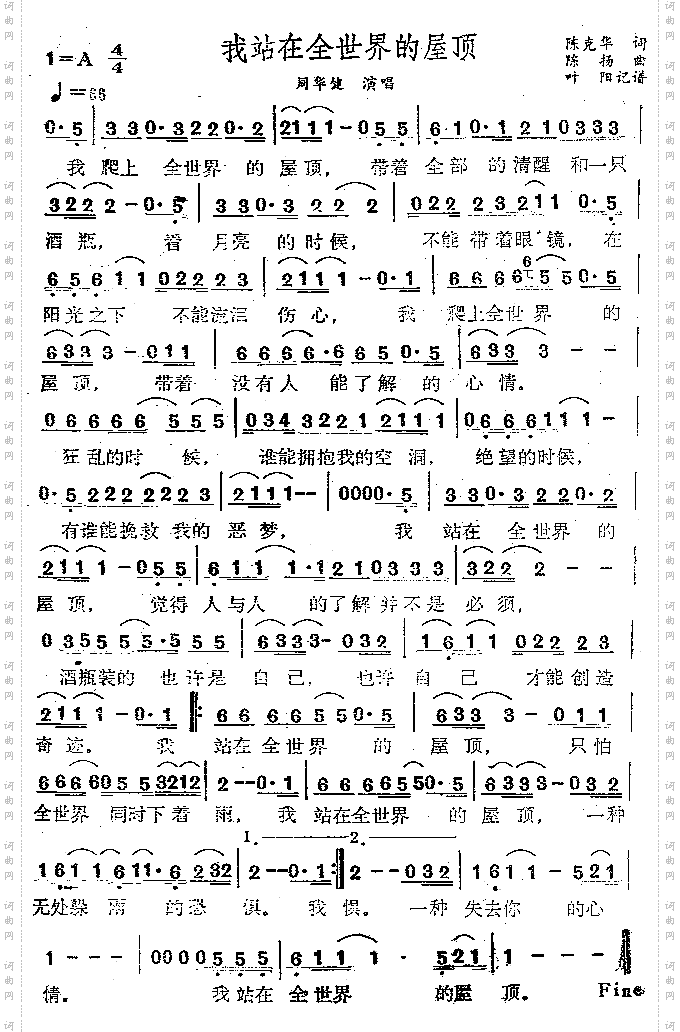 我站在全世界的屋顶
1=A 4/4
陈克华 词
陈扬 曲
叶阳记谱
♩=66
周华健 演唱
0·5 | 330·3220·2 | 2111-055 | 610·1 2 10333
我 爬上 全世界 的 屋顶, 带着 全部 的 清醒 和一只
3222-0·5 | 330·3 22 2 | 022 23 211 0·5
酒瓶, 着 月亮 的时候, 不能 带着眼 镜, 在
65611 02223 | 2111-0·1 | 66665505
阳光之下 不能流泪 伤心, 我 爬上全世界 的
6333-011 | 6666·6650· | 6333--
屋顶, 带着 没有人 能了解 的 心情。
06666 555 | 0343221 2111 | 0666111-
狂乱的时 候, 谁能拥抱我的空 洞, 绝望的时候,
0·5222 22223 | 2111-- | 0000·5 | 330·3220·
有谁能挽救 我的 恶梦, 我 站在 全世界 的
2111-055 | 611 11·1210333 | 3222--
屋顶, 觉得 人与人 的了解并不是 必须,
03555 5·555 | 6333-03 | 1611 022 23
酒瓶装的 也许是 自己, 也许 自己 才能创造
2111-0·1 | 66 66550·5 | 6333-011
奇迹。 我 站在全世界 的 屋顶, 只怕
6666055 3212 | 2--0·1 | 666665505· | 6333-032
全世界 同时下着 雨, 我 站在全世界 的 屋顶, 一种
1. 2.
161 1611·6 232 | 2--0·1 | 2--032 | 1611-521
无处躲 雨 的恐 惧。 我 惧。 一种 失去你 的心
1--- | 0000555 | 611 1· 521 | 1---
情。 我站在 全世界 的屋 顶。 Fine
词曲网